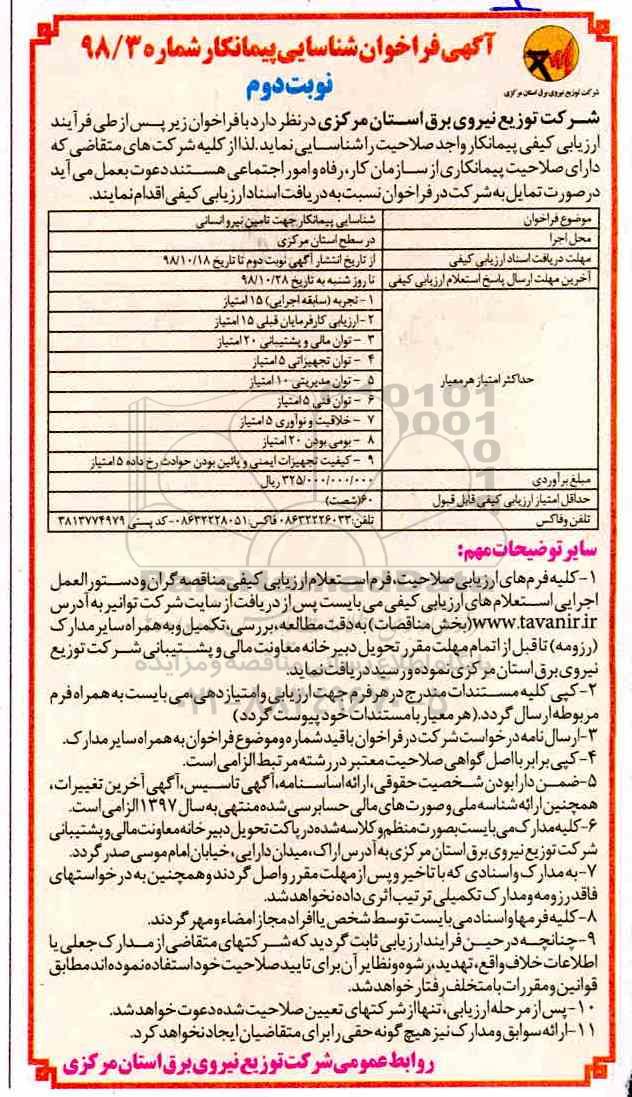 آگهی فراخوان شناسایی پیمانکار شماره ۹۸/۳
نوبت دوم
شرکت توزیع نیروی برق استان مرکزی
شرکت توزیع نیروی برق استان مرکزی در نظر دارد با فراخوان زیر پس از طی فرآیند
ارزیابی کیفی پیمانکار واجد صلاحیت را شناسایی نماید. لذا از کلیه شرکت های متقاضی که
دارای صلاحیت پیمانکاری از سازمان کار، رفاه و امور اجتماعی هستند دعوت بعمل می آید
در صورت تمایل به شرکت در فراخوان نسبت به دریافت اسناد ارزیابی کیفی اقدام نمایند.
موضوع فراخوان شناسایی پیمانکار جهت تامین نیرو انسانی
محل اجرا در سطح استان مرکزی
مهلت دریافت اسناد ارزیابی کیفی از تاریخ انتشار آگهی نوبت دوم تا تاریخ ۹۸/۱۰/۱۸
آخرین مهلت ارسال پاسخ استعلام ارزیابی کیفی تا روز شنبه به تاریخ ۹۸/۱۰/۲۸
حداکثر امتیاز هر معیار
۱- تجربه (سابقه اجرایی) ۱۵ امتیاز
۲- ارزیابی کارفرمایان قبلی ۱۵ امتیاز
۳ - توان مالی و پشتیبانی ۲۰ امتیاز
۴ - توان تجهیزاتی ۵ امتیاز
۵ - توان مدیریتی ۱۰ امتیاز
۶ - توان فنی ۵ امتیاز
۷ - خلاقیت و نوآوری ۵ امتیاز
۸ - بومی بودن ۲۰ امتیاز
۹ - کیفیت تجهیزات ایمنی و پائین بودن حوادث رخ داده ۵ امتیاز
مبلغ برآوردی ۳۲۵/۰۰۰/۰۰۰/۰۰۰ ریال
حداقل امتیاز ارزیابی کیفی قابل قبول ۶۰ (شصت)
تلفن و فاکس تلفن: ۰۸۶۳۲۲۲۶۰۳۳ فاکس: ۰۸۶۳۲۲۲۸۰۵۱ - کد پستی ۳۸۱۳۷۷۴۹۷۹
سایر توضیحات مهم:
۱- کلیه فرم های ارزیابی صلاحیت، فرم استعلام ارزیابی کیفی مناقصه گران و دستورالعمل
اجرایی استعلام های ارزیابی کیفی می بایست پس از دریافت از سایت شرکت توانیر به آدرس
www.tavanir.ir (بخش مناقصات) به دقت مطالعه، بررسی، تکمیل و به همراه سایر مدارک
(رزومه) تا قبل از اتمام مهلت مقرر تحویل دبیرخانه معاونت مالی و پشتیبانی شرکت توزیع
نیروی برق استان مرکزی نموده و رسید دریافت نماید.
۲- کپی کلیه مستندات مندرج در هر فرم جهت ارزیابی و امتیازدهی، می بایست به همراه فرم
مربوطه ارسال گردد. (هر معیار با مستندات خود پیوست گردد)
۳- ارسال نامه درخواست شرکت در فراخوان با قید شماره و موضوع فراخوان به همراه سایر مدارک.
۴- کپی برابر با اصل گواهی صلاحیت معتبر در رشته مرتبط الزامی است.
۵- ضمن دارا بودن شخصیت حقوقی، ارائه اساسنامه، آگهی تاسیس، آگهی آخرین تغییرات،
همچنین ارائه شناسه ملی و صورت های مالی حسابرسی شده منتهی به سال ۱۳۹۷ الزامی است.
۶- کلیه مدارک می بایست بصورت منظم و کلاسه شده در پاکت تحویل دبیرخانه معاونت مالی و پشتیبانی
شرکت توزیع نیروی برق استان مرکزی به آدرس اراک، میدان دارایی، خیابان امام موسی صدر گردد.
۷- به مدارک و اسنادی که با تاخیر و پس از مهلت مقرر واصل گردند و همچنین به درخواستهای
فاقد رزومه و مدارک تکمیلی ترتیب اثری داده نخواهد شد.
۸- کلیه فرمها و اسناد می بایست توسط شخص یا افراد مجاز امضاء و مهر گردند.
۹- چنانچه در حین فرایند ارزیابی ثابت گردید که شرکتهای متقاضی از مدارک جعلی یا
اطلاعات خلاف واقع، تهدید، رشوه و نظایر آن برای تایید صلاحیت خود استفاده نموده اند مطابق
قوانین و مقررات با متخلف رفتار خواهد شد.
۱۰- پس از مرحله ارزیابی، تنها از شرکتهای تعیین صلاحیت شده دعوت خواهد شد.
۱۱- ارائه سوابق و مدارک نیز هیچ گونه حقی را برای متقاضیان ایجاد نخواهد کرد.
روابط عمومی شرکت توزیع نیروی برق استان مرکزی